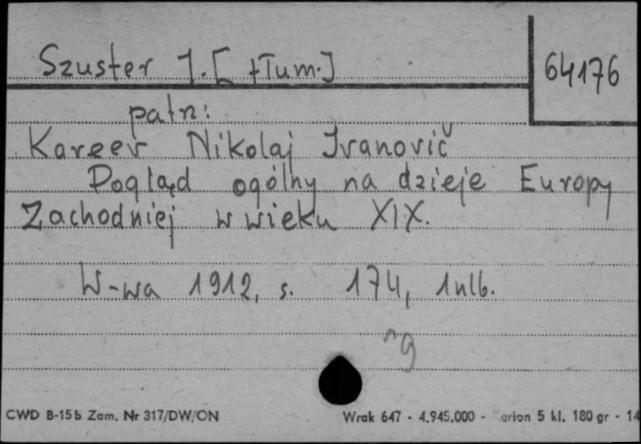 Szuster J. [tłum.]
64176
patrz:
Kareev Nikolaj Ivanovič
Pogląd ogólny na dzieje Europy
Zachodniej w wieku XIX.
W-wa 1912, s. 174, 1nlb.
CWD B-15b Zam. Nr 317/DW/ON
Wrak 647 - 4.945.000 - 5 kl. 180 gr - 14